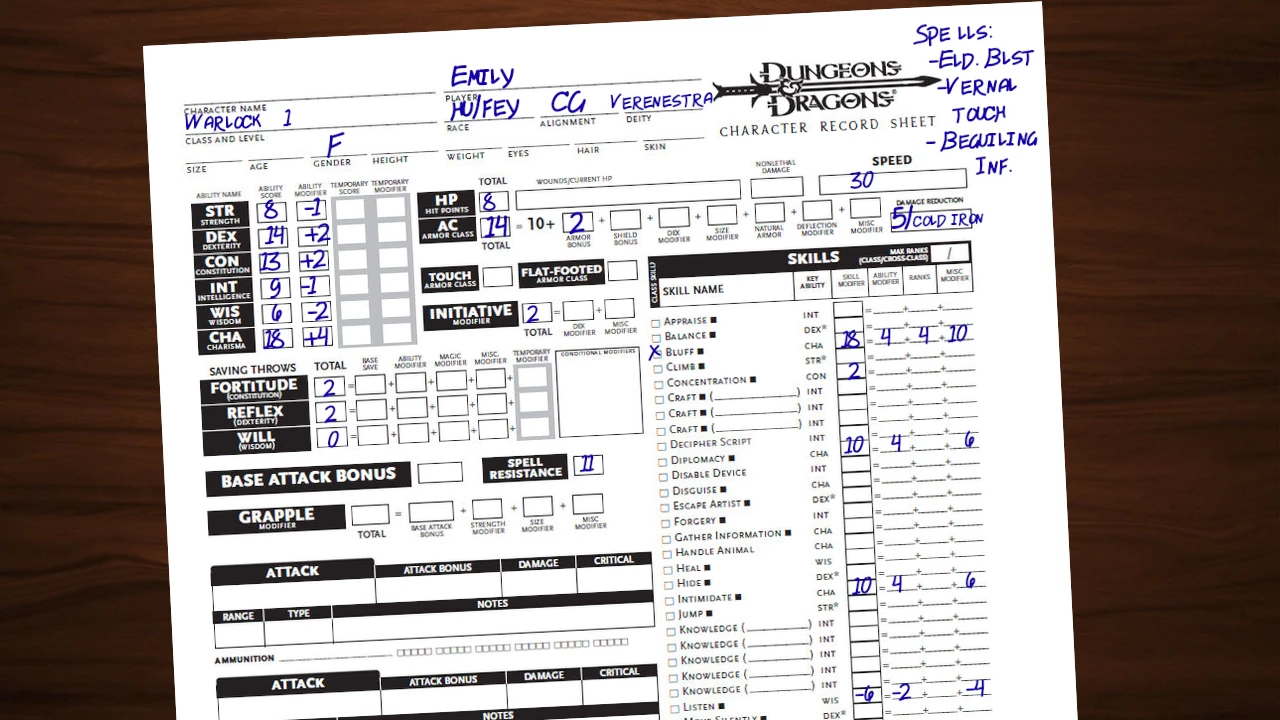 SPELLS:
-ELD. BLST
-VERNAL
TOUCH
- BEGUILING
INF.
EMILY
CHARACTER NAME
PLAYER
DUNGEONS
&
DRAGONS®
CHARACTER RECORD SHEET
WARLOCK 1
HU/FEY
CG
VERENESTRA
CLASS AND LEVEL
RACE
ALIGNMENT
DEITY
F
SIZE
AGE
GENDER
HEIGHT
WEIGHT
EYES
HAIR
SKIN
ABILITY NAME
ABILITY SCORE
ABILITY MODIFIER
TEMPORARY SCORE
TEMPORARY MODIFIER
STR STRENGTH 8 -1
DEX DEXTERITY 14 +2
CON CONSTITUTION 13 +2
INT INTELLIGENCE 9 -1
WIS WISDOM 6 -2
CHA CHARISMA 18 +4
TOTAL
WOUNDS/CURRENT HP
NONLETHAL DAMAGE
SPEED
HP HIT POINTS 8
30
AC ARMOR CLASS 14 = 10+ 2 + + + + + +
TOTAL
ARMOR BONUS
SHIELD BONUS
DEX MODIFIER
SIZE MODIFIER
NATURAL ARMOR
DEFLECTION MODIFIER
MISC MODIFIER
DAMAGE REDUCTION
5/COLD IRON
TOUCH ARMOR CLASS
FLAT-FOOTED ARMOR CLASS
INITIATIVE MODIFIER 2 = +
TOTAL
DEX MODIFIER
MISC MODIFIER
SAVING THROWS
TOTAL
BASE SAVE
ABILITY MODIFIER
MAGIC MODIFIER
MISC. MODIFIER
TEMPORARY MODIFIER
CONDITIONAL MODIFIERS
FORTITUDE (CONSTITUTION) 2 = + + + +
REFLEX (DEXTERITY) 2 = + + + +
WILL (WISDOM) 0 = + + + +
BASE ATTACK BONUS
SPELL RESISTANCE 11
GRAPPLE MODIFIER = + + +
TOTAL
BASE ATTACK BONUS
STRENGTH MODIFIER
SIZE MODIFIER
MISC MODIFIER
ATTACK
ATTACK BONUS
DAMAGE
CRITICAL
RANGE
TYPE
NOTES
AMMUNITION
ATTACK
ATTACK BONUS
DAMAGE
CRITICAL
NOTES
CLASS SKILL?
SKILLS
MAX RANKS (CLASS/CROSS-CLASS) /
SKILL NAME
KEY ABILITY
SKILL MODIFIER
ABILITY MODIFIER
RANKS
MISC MODIFIER
APPRAISE ■ INT
BALANCE ■ DEX*
X BLUFF ■ CHA 18 = 4 + 4 + 10
CLIMB ■ STR*
CONCENTRATION ■ CON 2
CRAFT ■ ( ) INT
CRAFT ■ ( ) INT
CRAFT ■ ( ) INT
DECIPHER SCRIPT INT
DIPLOMACY ■ CHA 10 = 4 + + 6
DISABLE DEVICE INT
DISGUISE ■ CHA
ESCAPE ARTIST ■ DEX*
FORGERY ■ INT
GATHER INFORMATION ■ CHA
HANDLE ANIMAL CHA
HEAL ■ WIS
HIDE ■ DEX*
INTIMIDATE ■ CHA 10 = 4 + + 6
JUMP ■ STR*
KNOWLEDGE ( ) INT
KNOWLEDGE ( ) INT
KNOWLEDGE ( ) INT
KNOWLEDGE ( ) INT
KNOWLEDGE ( ) INT
LISTEN ■ WIS -6 = -2 + + -4
MOVE SILENTLY ■ DEX*